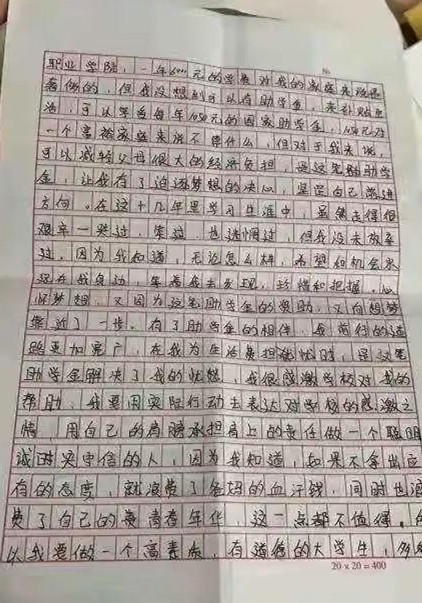 职业学院，一年6000元的学费对我的家庭来说是
着倒的，但我没想到可以有助学金，来补贴生
活，可以学费每年1650元的国家助学金，1650元对
一个富裕家庭来说不算什么，但对于我来说，
可以减轻父母很大的经济负担，是这笔助学
金，让我有了追逐梦想的决心，坚定自己前进
方向。在这十几年里学习生涯中，虽然走得很
艰辛一哭过，笑过，也迷惘过，但我没未放弃
过，因为我知道，无论怎么样，希望和机会永
远在我身边，等着我去发现，珍惜和把握，心
怀梦想，又因为这笔助学金的资助，又向想梦
靠近了一步。有了助学金的相伴，每前行的道
路更加宽广，在我为生活费担忧忧时，是这笔
助学金解决了我的忧愁，我很感激学校对我的
帮助，我要用实际行动去表达对学校的感激之
情，用自己的肩膀承担肩上的责任做一个聪明
诚时实守信的人，因为我知道，如果不拿出应
有的态度，就浪费了爸妈的血汗钱，同时也浪
费了自己的贵青春年华，这一点都不值得，所
以我要做一个高素质，有道德的大学生，多
20×20=400